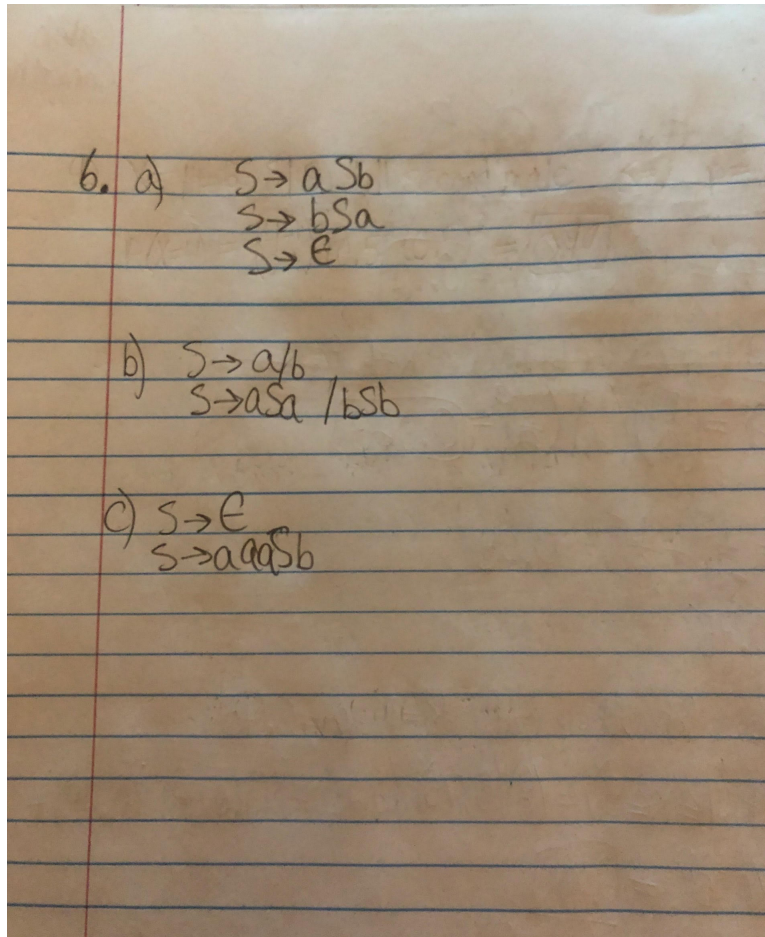 6. a) S→ aSb
S→ bSa
S→ ϵ
b) S→ a/b
S→aSa /bSb
c) S→ϵ
S→aaaSb